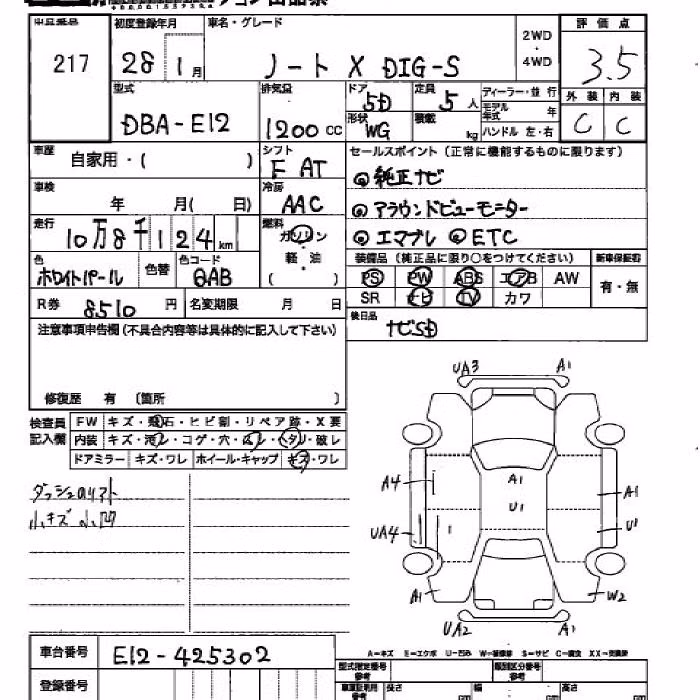 217
初度登録年月
28 1月
車名・グレード
ノート X DIG-S
2WD
・
4WD
評価点
3.5
外装 内装
C C
型式
DBA-E12
排気量
1200 cc
ドア
5D
形状
WG
定員
5人
積載
kg
ディーラー・並行
モデル年式 年
ハンドル 左・右
車歴
自家用・( )
シフト
F AT
セールスポイント (正常に機能するものに限ります)
◎純正ナビ
◎アラウンドビューモニター
◎エマブレ ◎ETC
車検
年 月( 日)
冷房
AAC
走行
10万8千124km
燃料
ガソリン
・
軽・油
( )
色
ホワイトパール
色替
色コード
QAB
装備品 (純正品に限り○をつけてください)
PS PW ABS エアB AW
SR ナビ TV カワ
新車保証書
有・無
R券 8510 円
名変期限 月 日
後日品
ナビSD
注意事項申告欄(不具合内容等は具体的に記入して下さい)
修復歴 有 〔箇所 〕
検査員
記入欄
FW キズ・飛石・ヒビ割・リペア跡・X要
内装 キズ・汚レ・コゲ・穴・ハレ・ヘタリ・破レ
ドアミラー キズ・ワレ ホイール・キャップ キズ・ワレ
ダッシュのリフト
小キズ 小凹
UA3 A1
A4 A1 A1
U1 U1
UA4 1
A1 W2
UA2 A1
A-キズ E-エクボ U-凹み W-補修跡 S-サビ C-腐食 XX-交換済
車台番号
E12-425302
登録番号
型式指定番号
参考
類別区分番号
参考
長さ cm
幅 cm
高さ cm